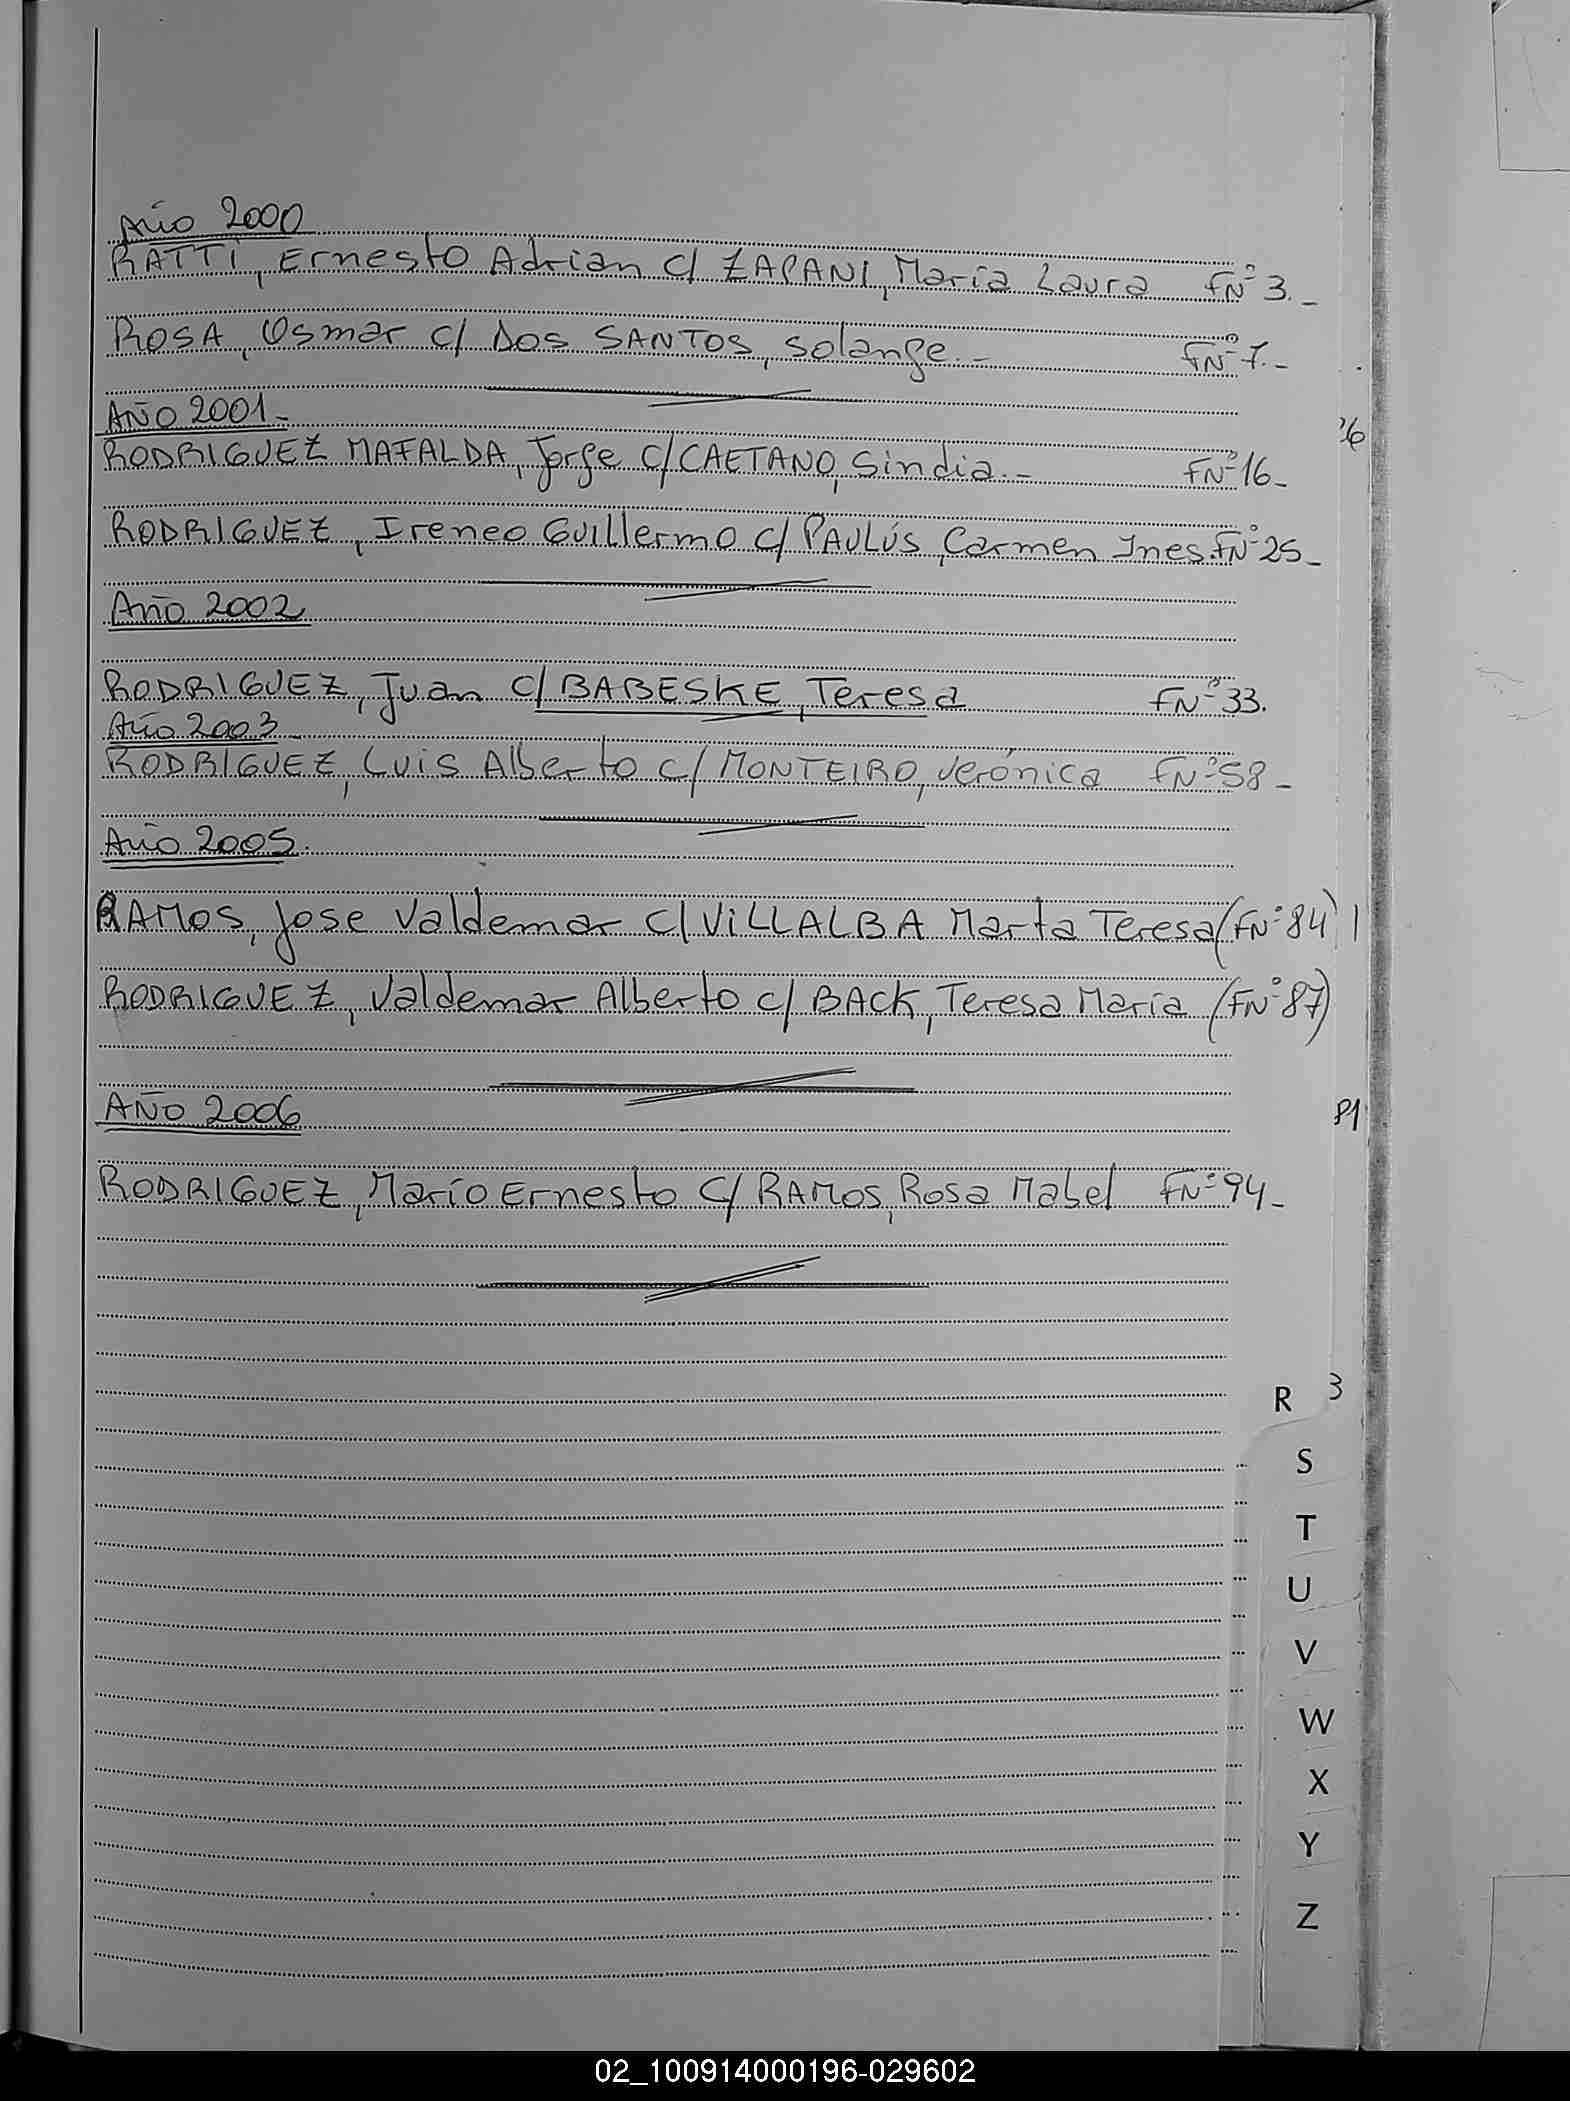 Año 2000
RATTI, Ernesto Adrian c/ ZAPANI, María Laura FNº 3.-
ROSA, Osmar c/ DOS SANTOS, Solange.- FNº 7.-
AÑO 2001.-
RODRIGUEZ MAFALDA, Jorge c/ CAETANO, Sindia.- FNº 16-
RODRIGUEZ, Ireneo Guillermo c/ PAULÚS, Carmen Ines. FNº 25-
Año 2002
RODRIGUEZ, Juan c/ BABESKE, Teresa FNº 33.
Año 2003-
RODRIGUEZ, Luis Alberto c/ MONTEIRO, Verónica FNº 58-
Año 2005.
RAMOS, Jose Valdemar c/ VILLALBA Marta Teresa (FNº 84)
RODRIGUEZ, Valdemar Alberto c/ BACK, Teresa María (FNº 87)
AÑO 2006
RODRIGUEZ, Mario Ernesto c/ RAMOS, Rosa Mabel FNº 94-
R 3
S
T
U
V
W
X
Y
Z
02_100914000196-029602